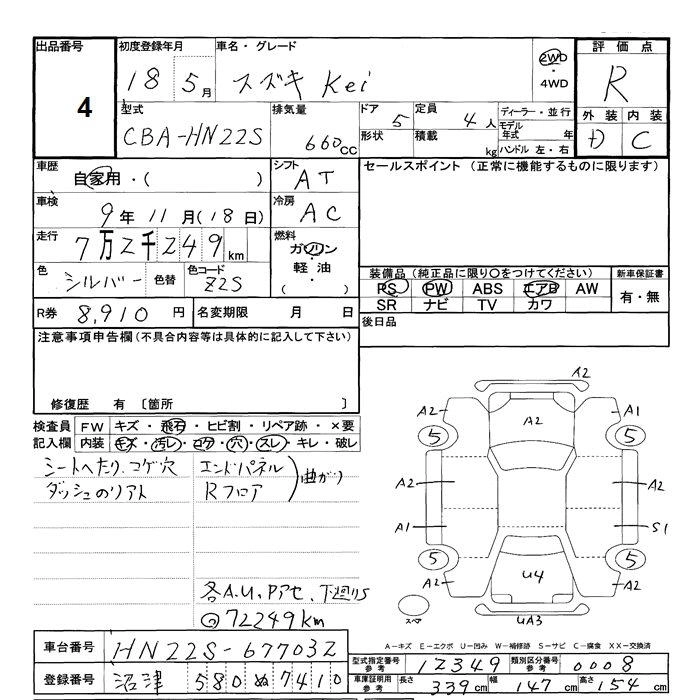 出品番号 4
初度登録年月 18 5月
車名・グレード スズキ Kei
2WD
・
4WD
評価点 R
外装 内装
D C
型式 CBA-HN22S
排気量 660cc
ドア 5
形状
定員 4人
積載 kg
ディーラー・並行
モデル年式 年
ハンドル 左・右
車歴 自家用・( )
シフト AT
車検 9年11月(18日)
冷房 AC
走行 7万2千249km
燃料 ガソリン
・
軽油
・
( )
色 シルバー 色替
色コード Z2S
R券 8,910円 名変期限 月 日
セールスポイント (正常に機能するものに限ります)
装備品(純正品に限り○をつけてください) 新車保証書
PS PW ABS エアB AW 有・無
SR ナビ TV カワ
後日品
注意事項申告欄(不具合内容等は具体的に記入して下さい)
修復歴 有 〔箇所 〕
検査員記入欄 FW キズ・飛石・ヒビ割・リペア跡・×要
内装 キズ・汚レ・コゲ・穴・スレ・キレ・破レ
シートへたり、コゲ穴
ダッシュのリアト
エンドパネル
Rフロア
曲がり
各A.U.Pアセ、下廻りS
72249km
A2
A2 A2 A1
5 5
A2 A2
A1 S1
5 5
A2 U4 A2
スペア UA3
A-キズ E-エクボ U-凹み W-補修跡 S-サビ C-腐食 XX-交換済
車台番号 HN22S-677032
登録番号 沼津 580 ぬ 7410
型式指定番号 参考 12349 類別区分番号 参考 0008
車庫証明用 参考 長さ 339cm 幅 147cm 高さ 154cm